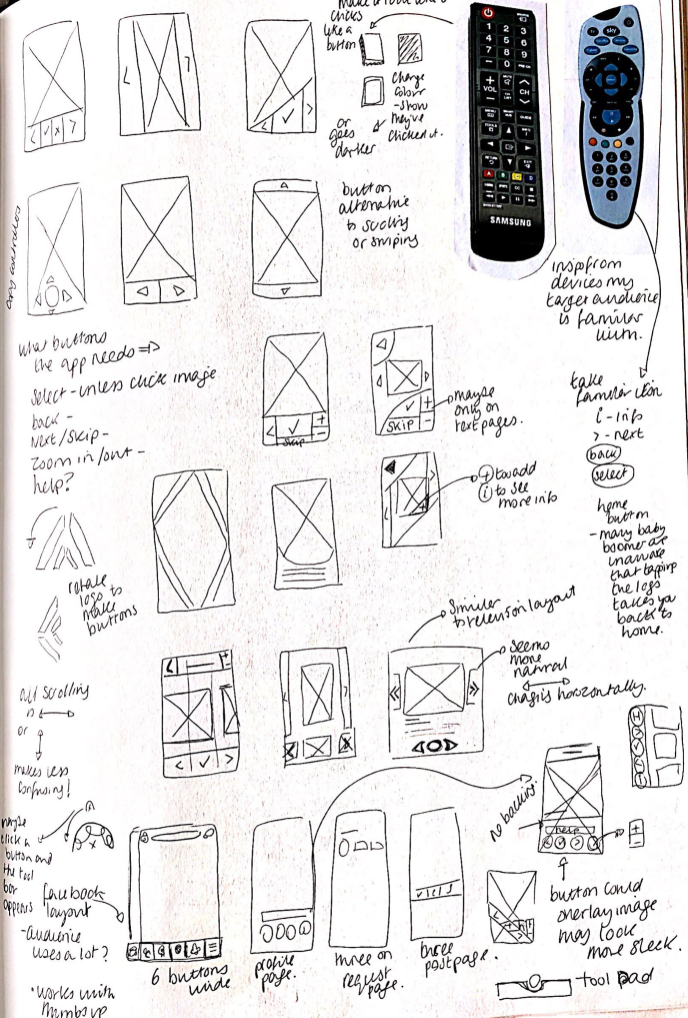 clicks
like a
button
Change
colour
-show
they've
clicked it.
or
goes
darker
button
alternative
to scrolling
or swiping
1 2 3
4 5 6
7 8 9
0
VOL
CH
SAMSUNG
sky
insp from
devices my
target audience
is familiar
with.
what buttons
the app needs =>
select - unless click image
back -
Next/skip -
Zoom in/out -
help?
skip
SKIP
maybe
only on
text pages.
take
familiar icon
i - info
> - next
back
select
+ to add
i to see
more info
home
button
- many baby
boomer are
unaware
that tapping
the logo
takes you
back to
home.
rotate
logo to
make
buttons
Similar
to television layout
seems
more
natural
horizontally.
all scrolling
or
makes less
confusing!
maybe
click a
button and
the tool
bar
appears
facebook
layout
- audience
uses a lot?
• works with
thumbs up
6 buttons
wide
profile
page.
three on
request
page.
three
post page.
no backing.
help
button could
overlay image
may look
more sleek.
tool pad